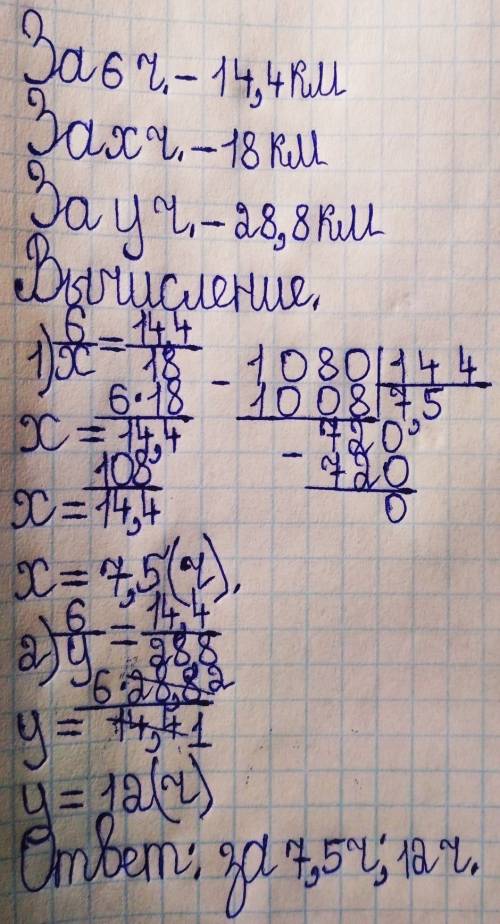 За 6 ч. – 14,4 км
За х ч. – 18 км
За у ч. – 28,8 км
Вычисление.
1) 6/х = 14,4/18
х = 6·18/14,4
х = 108/14,4
1080 | 144
– 1008 | 7,5
720
– 720
0
х = 7,5 (ч).
2) 6/у = 14,4/28,8
у = 6·28,8 2/14,4 1
у = 12 (ч)
Ответ: за 7,5 ч; 12 ч.